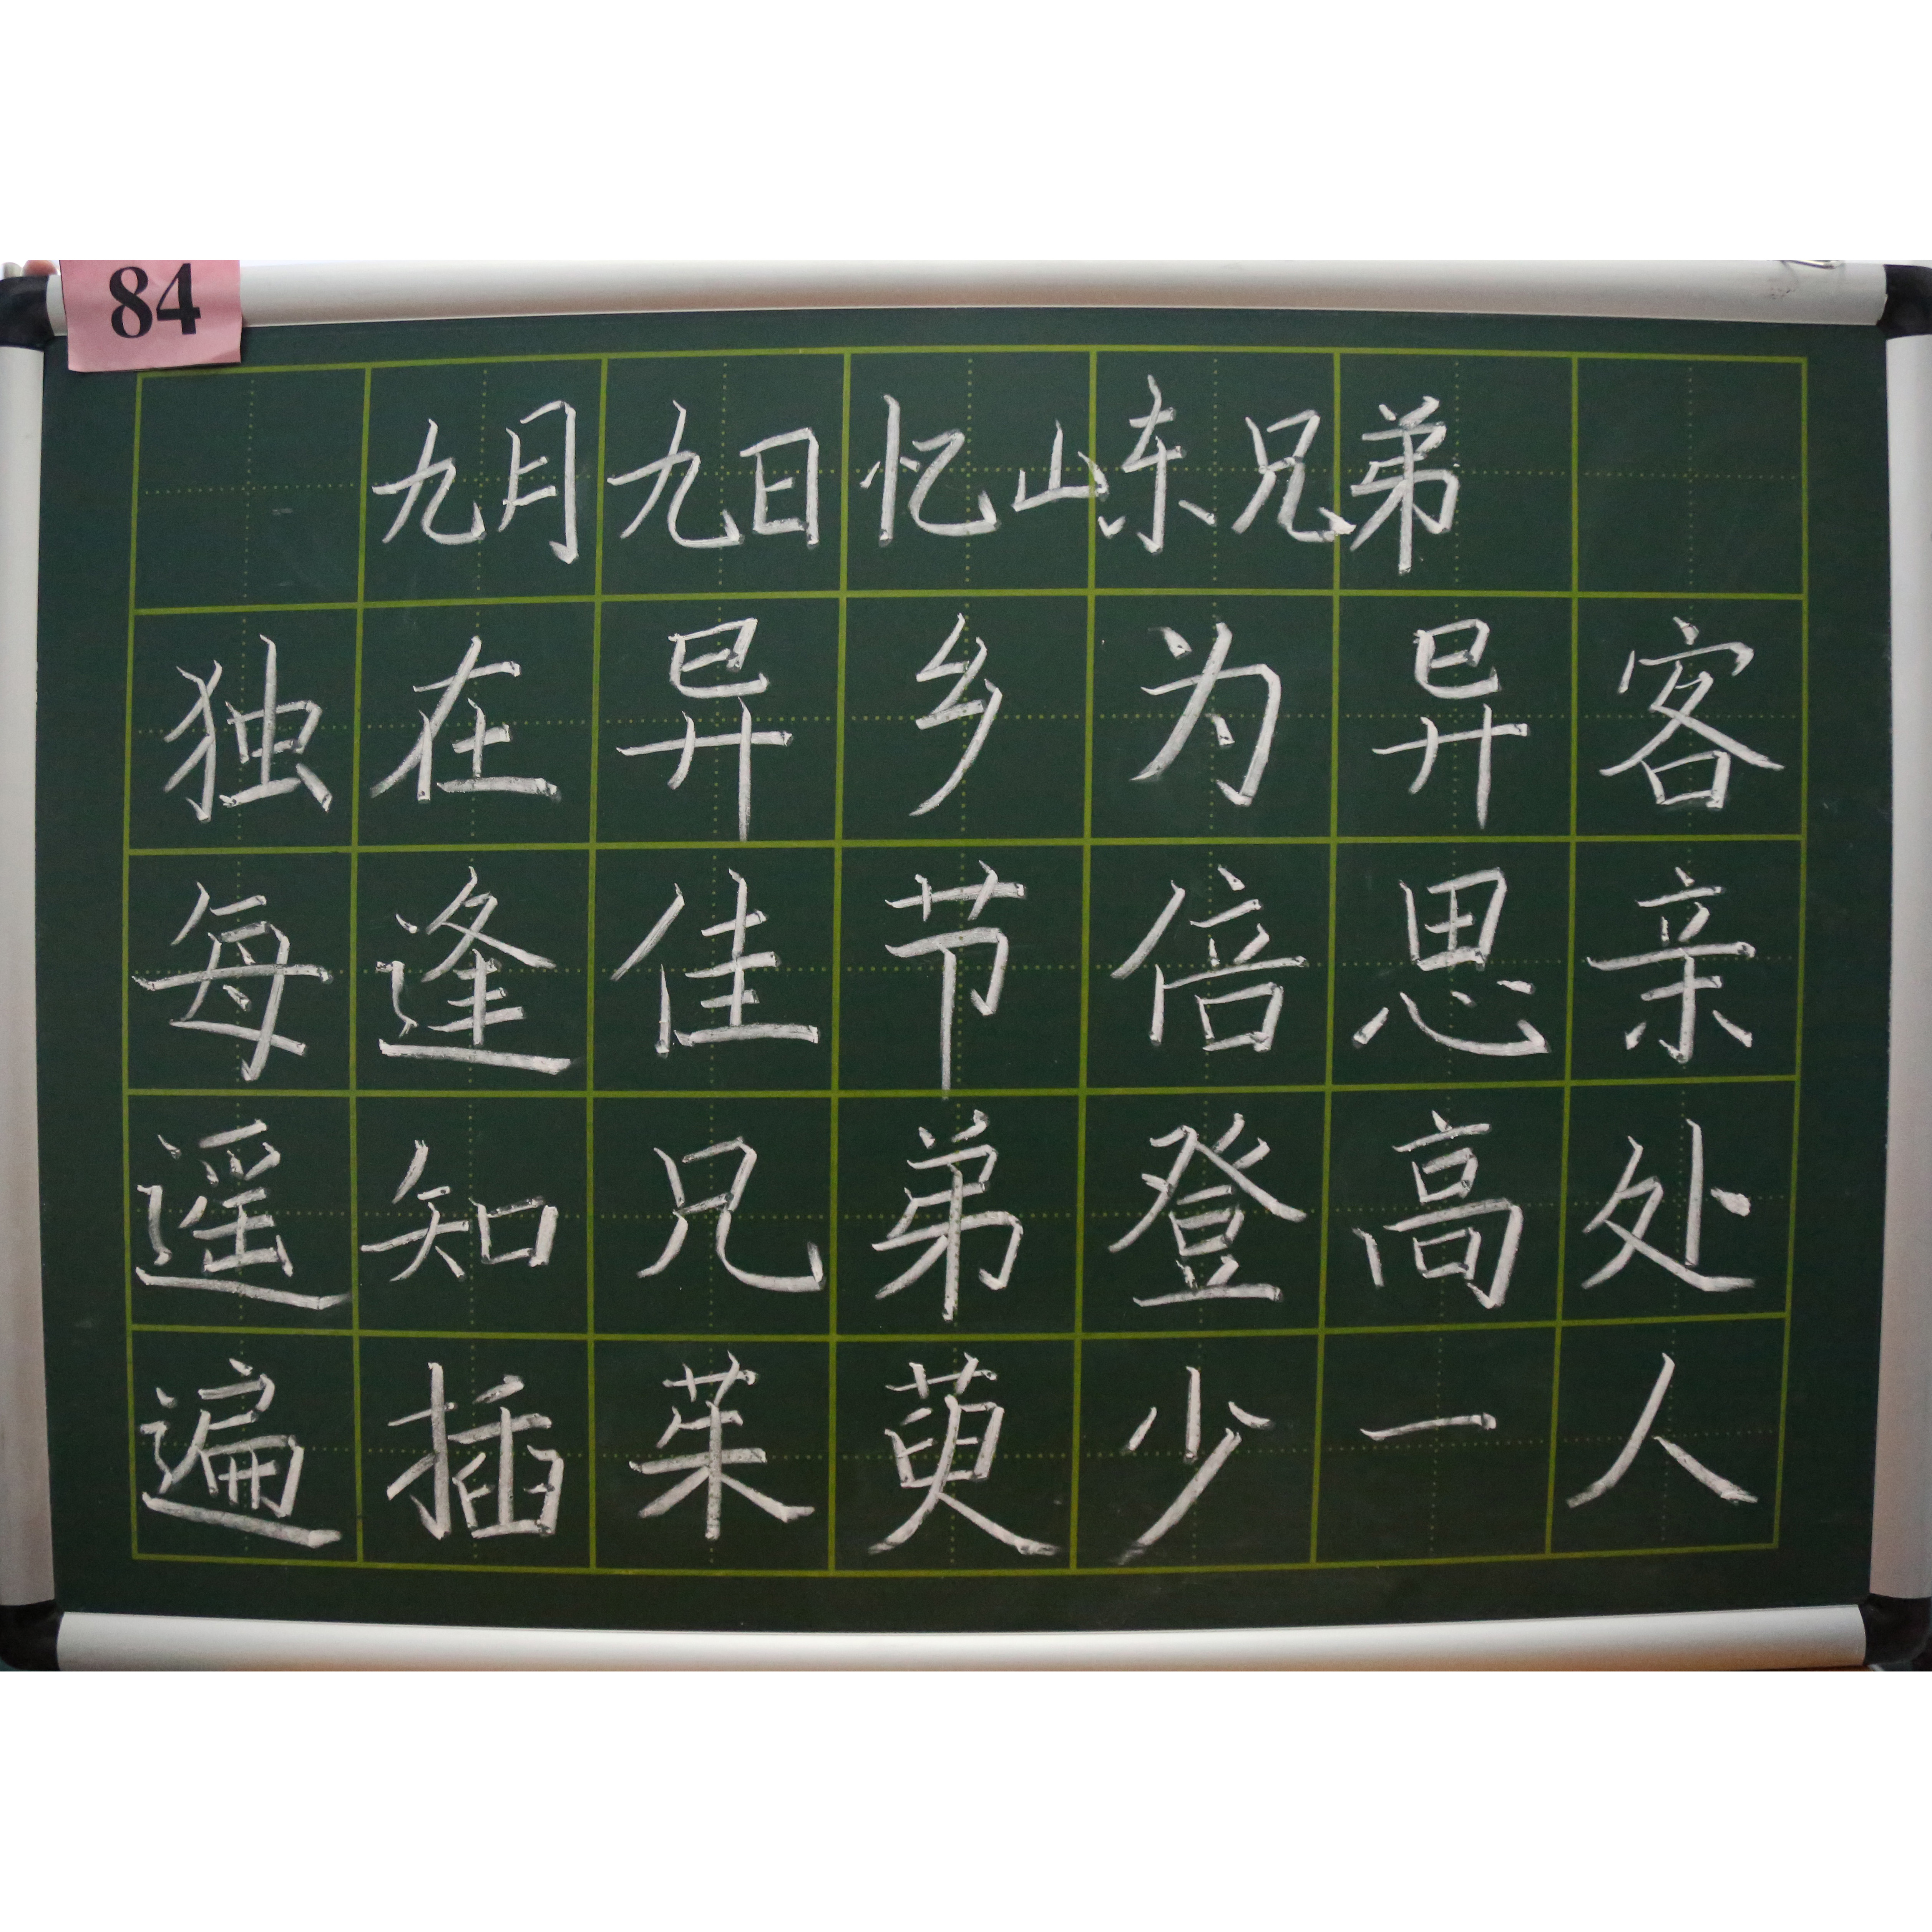 84
九月九日忆山东兄弟
独在异乡为异客
每逢佳节倍思亲
遥知兄弟登高处
遍插茱萸少一人